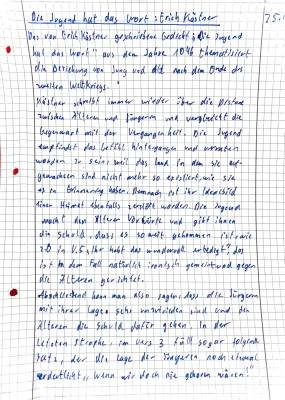 Die Jugend hat das Wort : Erich Kästner
75.
Das von Erich Kästner geschriebene Gedicht „Die Jugend
hat das Wort" aus dem Jahre 1946 thematisiert
die Beziehung von Jung und Alt nach dem Ende des
zweiten Weltkriegs.
Kästner schreibt immer wieder über die Distanz
zwischen Älteren und Jüngeren und vergleicht die
Gegenwart mit der Vergangenheit. Die Jugend
empfindet das Gefühl hintergangen und verraten
worden zu sein, weil das Land in dem sie auf-
gewachsen sind nicht mehr so existiert, wie sie
es in Erinnerung haben. Demnach ist ihr Idealbild
einer Heimat ebenfalls zerstört worden. Die Jugend
macht den Älteren Vorwürfe und gibt ihnen
die Schuld, dass es so weit gekommen ist, wie
z.B in V.5 „Ihr habt das wundervoll erledigt". Das
ist in dem Fall natürlich ironisch gemeint und gegen
die Älteren gerichtet.
Abschließend kann man also sagen, dass die Jüngeren
mit ihrer Lage sehr unzufrieden sind und den
Älteren die Schuld dafür geben. In der
letzten Strophe, im Vers 3 fällt sogar folgender
Satz, der die Lage der Jüngeren noch einmal
verdeutlicht „wenn wir doch nie geboren wären!"